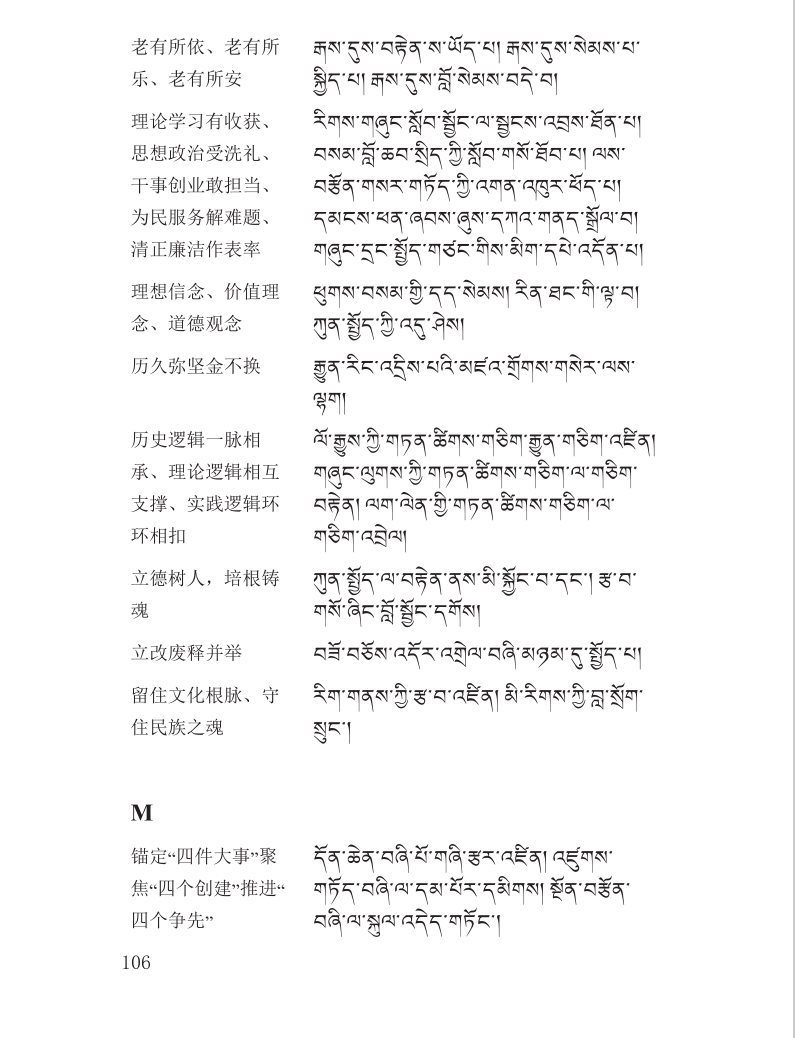 老有所依、老有所 རྒས་དུས་བརྟེན་ས་ཡོད་པ། རྒས་དུས་སེམས་པ་
乐、老有所安 སྐྱིད་པ། རྒས་དུས་བློ་སེམས་བདེ་བ།
理论学习有收获、 རིགས་གཞུང་སློབ་སྦྱོང་ལ་སྦྱངས་འབྲས་ཐོན་པ།
思想政治受洗礼、 བསམ་བློ་ཆབ་སྲིད་ཀྱི་སློབ་གསོ་ཐོབ་པ། ལས་
干事创业敢担当、 བརྩོན་གསར་གཏོད་ཀྱི་འགན་འཁུར་ཕོད་པ།
为民服务解难题、 དམངས་ཕན་ཞབས་ཞུས་དཀའ་གནད་སྒྲོལ་བ།
清正廉洁作表率 གཞུང་དྲང་སྤྱོད་གཙང་གིས་མིག་དཔེ་འདོན་པ།
理想信念、价值理 ཕུགས་བསམ་གྱི་དད་སེམས། རིན་ཐང་གི་ལྟ་བ།
念、道德观念 ཀུན་སྤྱོད་ཀྱི་འདུ་ཤེས།
历久弥坚金不换 རྒྱུན་རིང་འདྲིས་པའི་མཛའ་གྲོགས་གསེར་ལས་
ལྷག།
历史逻辑一脉相 ལོ་རྒྱུས་ཀྱི་གཏན་ཚིགས་གཅིག་རྒྱུན་གཅིག་འཛིན།
承、理论逻辑相互 གཞུང་ལུགས་ཀྱི་གཏན་ཚིགས་གཅིག་ལ་གཅིག་
支撑、实践逻辑环 བརྟེན། ལག་ལེན་གྱི་གཏན་ཚིགས་གཅིག་ལ་
环相扣 གཅིག་འབྲེལ།
立德树人，培根铸 ཀུན་སྤྱོད་ལ་བརྟེན་ནས་མི་སྐྱོང་བ་དང་། རྩ་བ་
魂 གསོ་ཞིང་བློ་སྦྱོང་དགོས།
立改废释并举 བཟོ་བཅོས་འདོར་འགྲེལ་བཞི་མཉམ་དུ་སྤྱོད་པ།
留住文化根脉、守 རིག་གནས་ཀྱི་རྩ་བ་འཛིན། མི་རིགས་ཀྱི་བླ་སྲོག་
住民族之魂 སྲུང་།
M
锚定“四件大事”聚 དོན་ཆེན་བཞི་པོ་གཞི་རྩར་འཛིན། འཛུགས་
焦“四个创建”推进“ གཏོད་བཞི་ལ་དམ་པོར་དམིགས། སྔོན་བརྩོན་
四个争先” བཞི་ལ་སྐུལ་འདེད་གཏོང་།
106